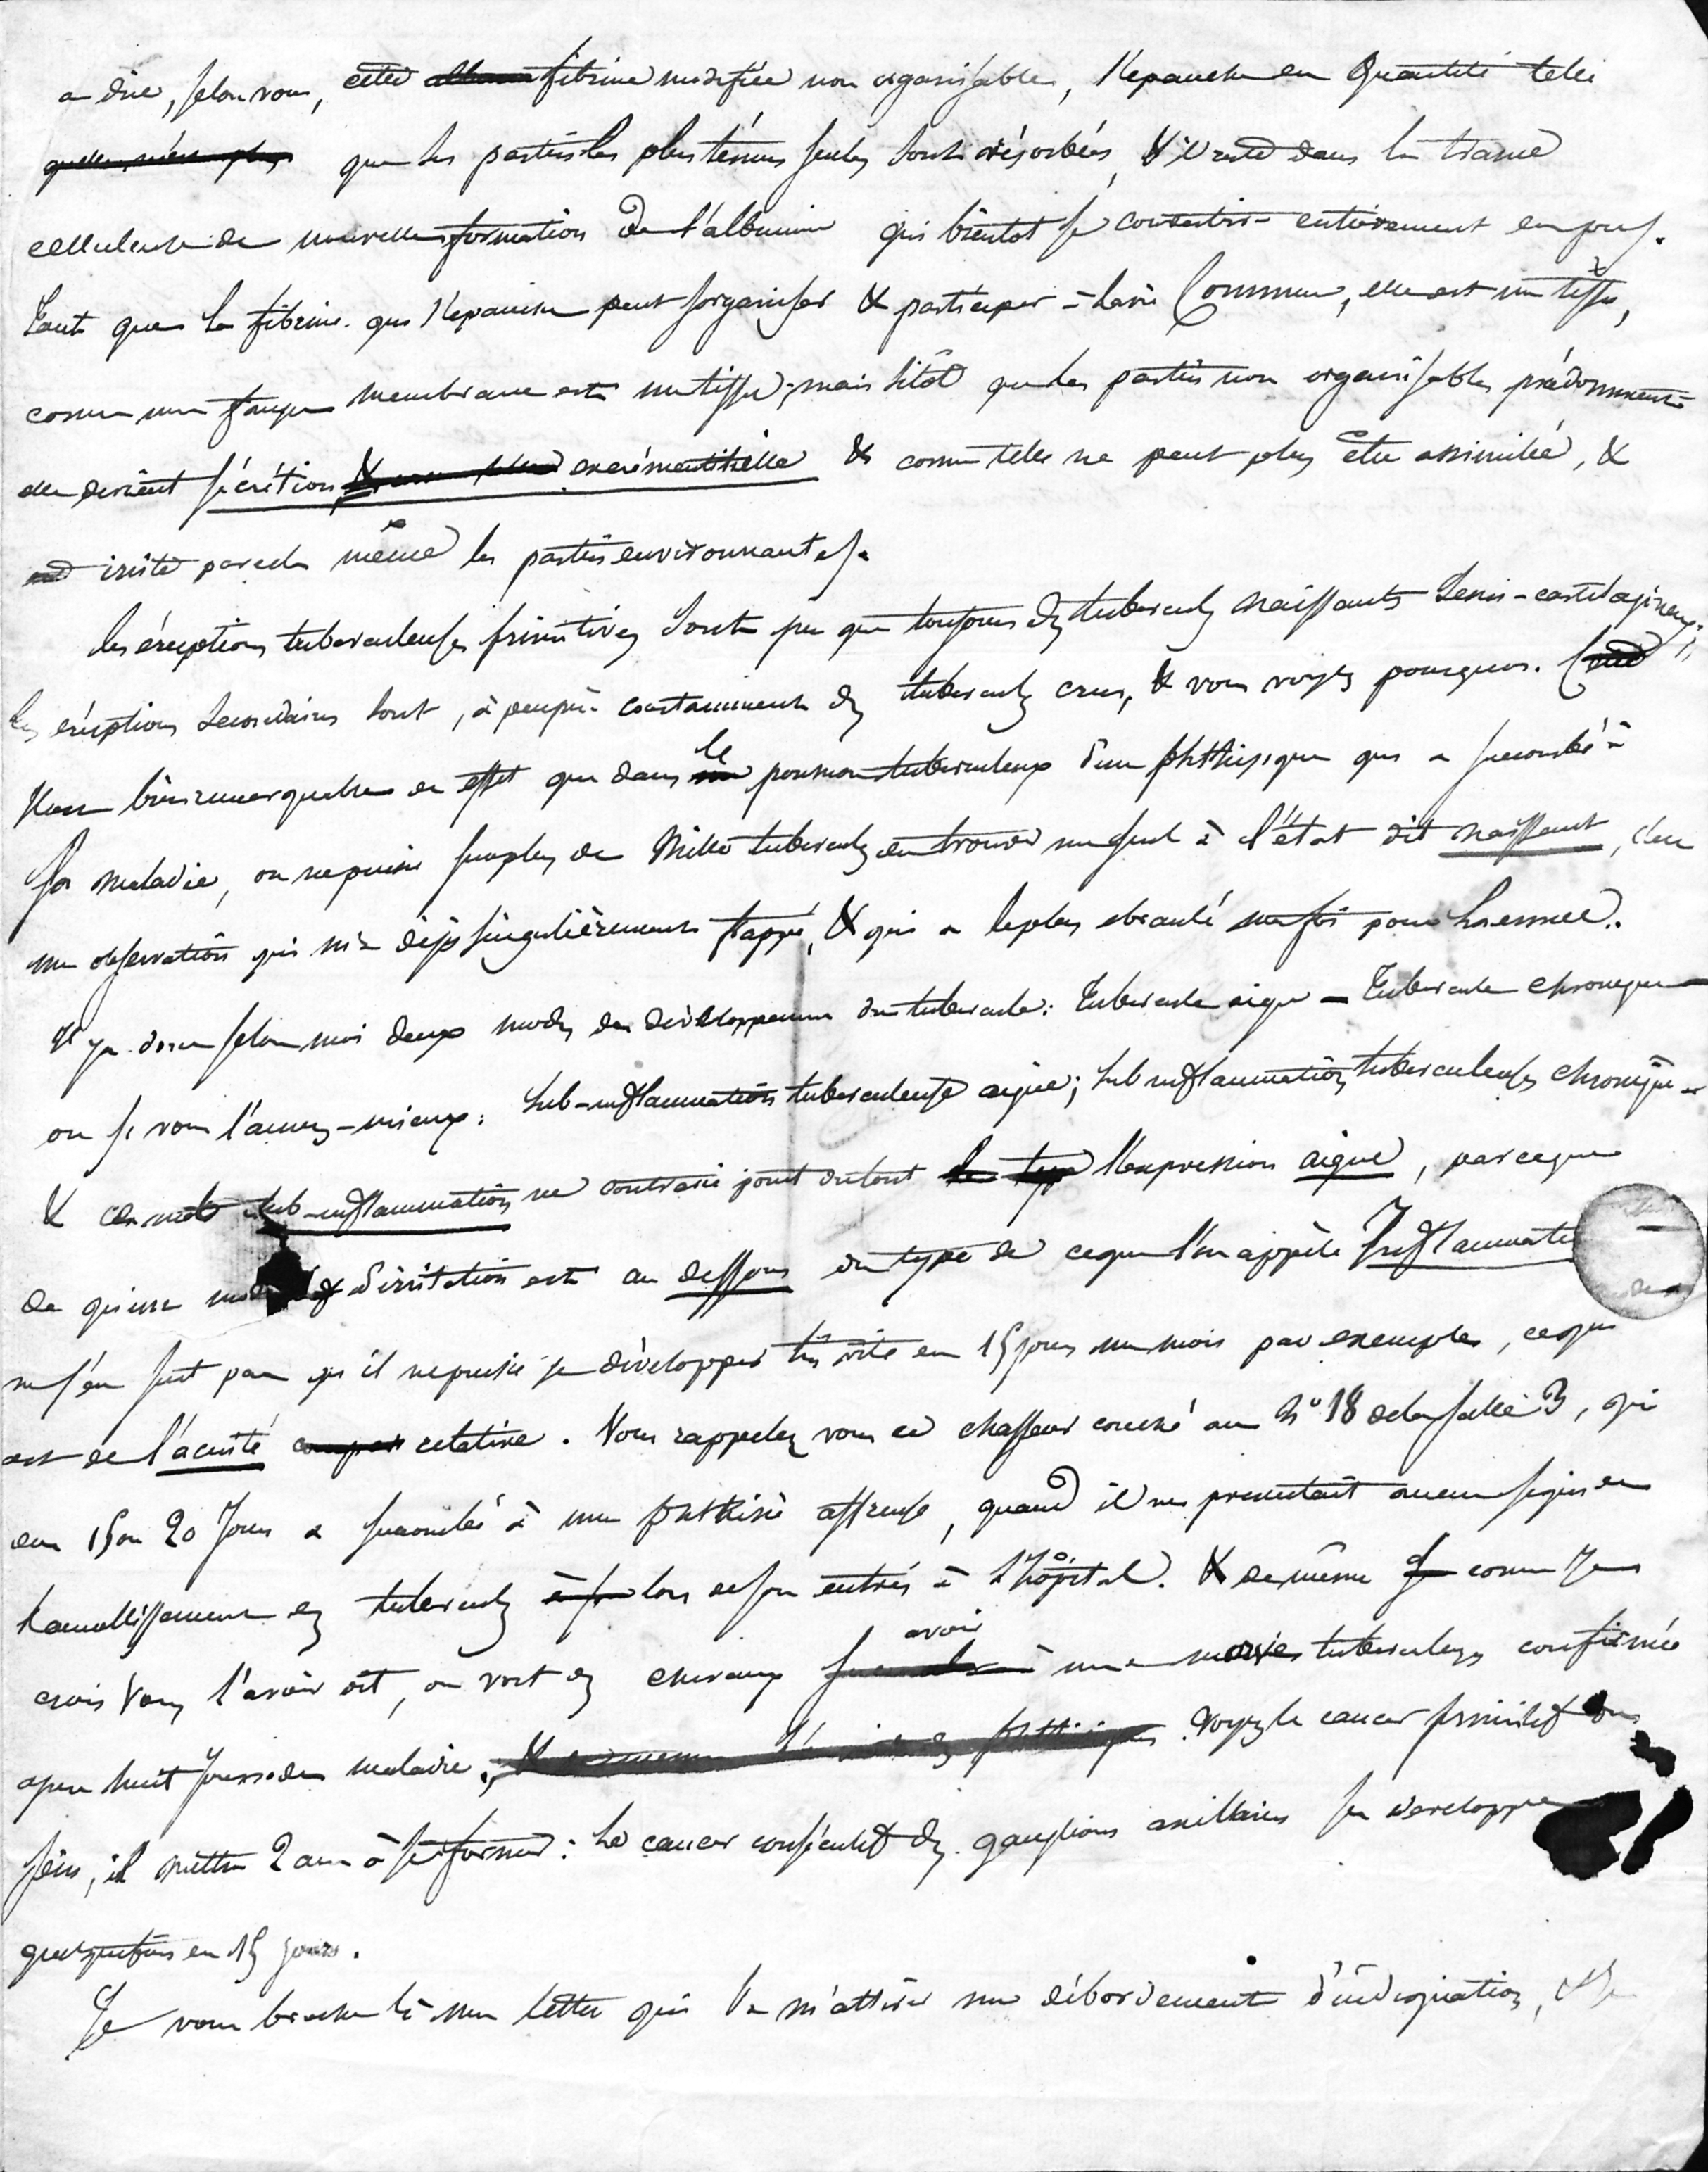 a dire, selon vous, cette fibrine modifiée non organisable, s'épanche en quantité telle
que les parties les plus ténues seules sont résorbées, & il reste dans la trame
celluleuse de nouvelle formation de l'albumine qui bientot se convertira entièrement en pus.
Tant que la fibrine qui s'épanche peut s'organiser & participer à la vie commune, elle est un tissu,
comme une fausse membrane est un tissu; mais sitôt que les parties non organisables prédominent
elle devient sécrétion excrémentitielle & comme telle ne peut plus être assimilée, &
irrite par cela même les parties environnantes.
les éruptions tuberculeuses primitives sont presque toujours des tubercules naissants demi-cartilagineux;
les éruptions secondaires sont, à peu près constamment des tubercules crus, & vous voyez pourquoi.
Il est bien remarquable en effet que dans le poumon tuberculeux d'un phthisique qui a succombé à
sa maladie, on ne puisse sur plus de mille tubercules en trouver un seul à l'état dit naissant, c'est
une observation qui m'a déjà singulièrement frappé, & qui a le plus ebranlé ma foi pour Laennec.
Il y a donc selon moi deux modes de développement du tubercule: Tubercule aigu – Tubercule chronique
ou si vous l'aimez-mieux: Sub-inflammation tuberculeuse aiguë; sub inflammation tuberculeuse chronique
& ce mot sub-inflammation ne contrarie point du tout l'expression aiguë, parceque
de qu'une mode d'irritation est au dessous du type de ce que l'on appèle Inflammation
ne s'en suit pas qu'il ne puisse se développer très vite en 15 jours un mois par exemple, ce qui
est de l'acuité relative. Vous rappelez vous ce chasseur couché au n° 18 de la salle 3, qui
en 15 ou 20 Jours a succombé à une phthisie affreuse, quand il ne presentait aucun signe de
Ramollissement des tubercules lors de son entrée à l'hôpital. & de même comme je
crois vous l'avoir dit, on voit des chevaux avoir une morve tuberculeuse confirmée
apres huit jours de maladie. Voyez le cancer primitif du
sein, il mettra 2 ans à se former: Le cancer consécutif des ganglions axillaires se développe
quelquefois en 15 jours.
Je vous broche là une lettre qui va m'attirer un débordement d'indignation, &